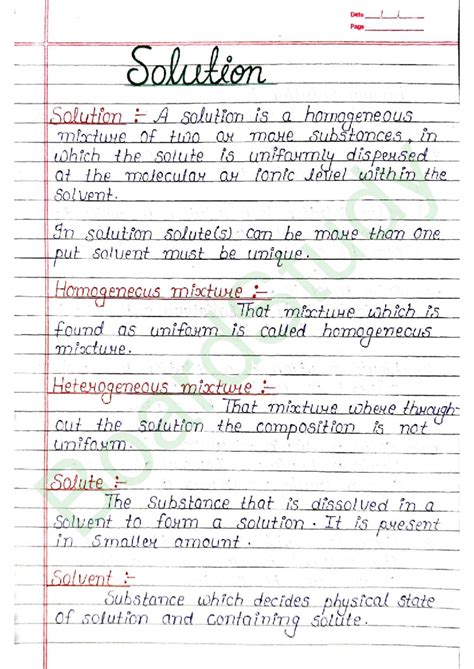 Date ___/___/___
Page
Solution
Solution :- A solution is a homogeneous
mixture of two or more substances, in
which the solute is uniformly dispersed
at the molecular or ionic level within the
solvent.
In solution solute(s) can be more than one
put solvent must be unique.
Homogeneous mixture :-
That mixture which is
found as uniform is called homogeneous
mixture.
Heterogeneous mixture :-
That mixture where through-
out the solution the composition is not
uniform.
Solute :-
The Substance that is dissolved in a
solvent to form a solution. It is present
in smaller amount.
Solvent :-
Substance which decides physical state
of solution and containing solute.
BoardStudy